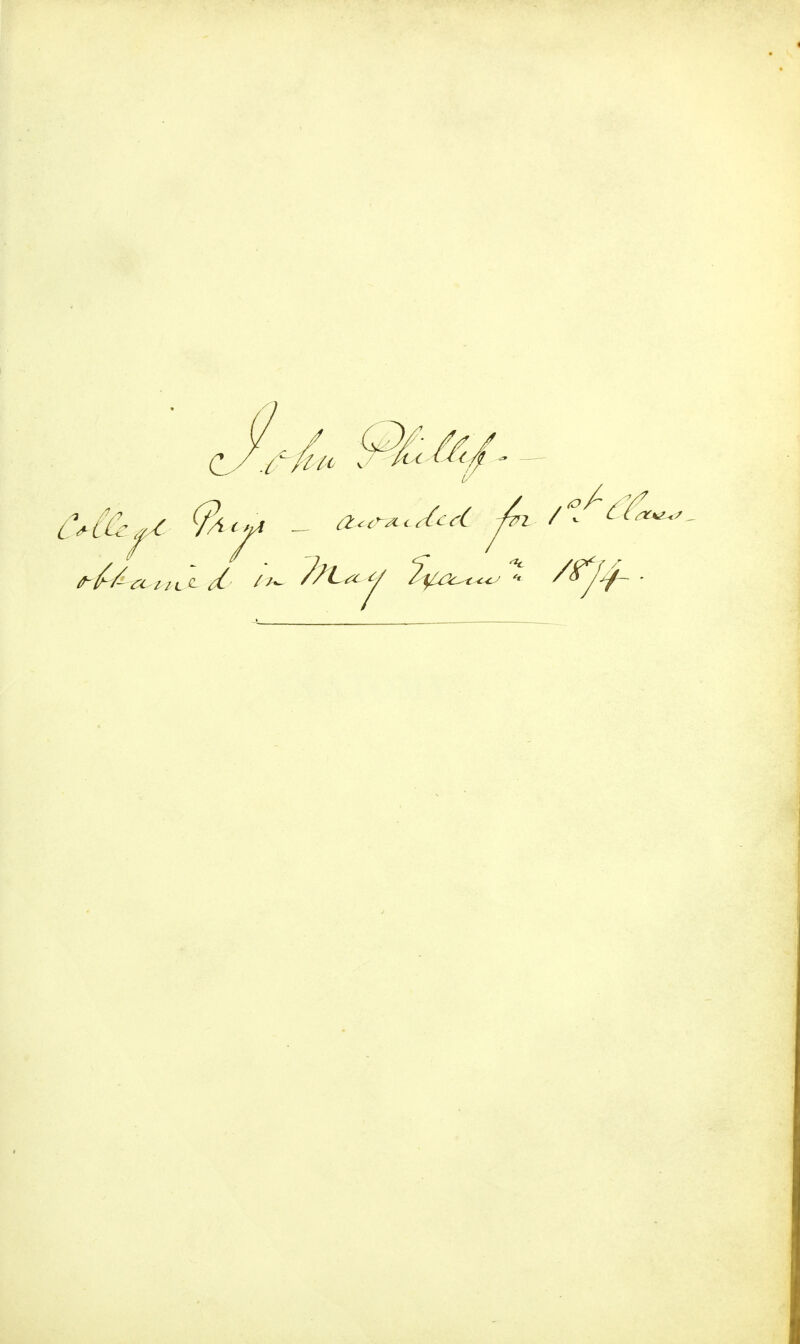 John Phillips. —
College Prize — awarded for 1st Class —
obtained in May Exam.n 1874.